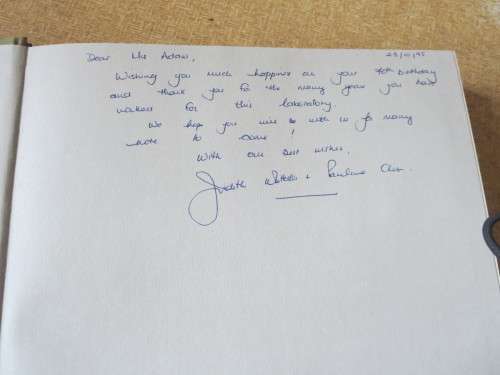 Dear Mr Adam,
Wishing you much happiness on your birthday
and thank you for the many years you have
worked for this laboratory.
We hope you will be with us for many
more to come!
With our best wishes,
Judith + Pauline